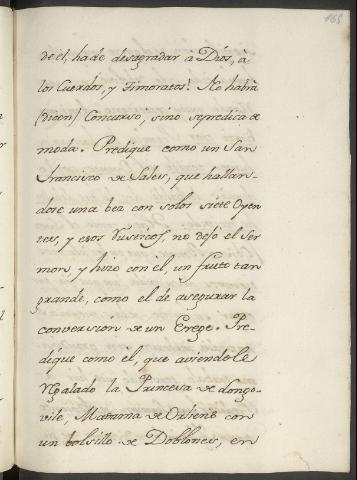 168
de èl, ha de desagradar à Dios, à
los Cuerdos, y Timoratos! No habrà
(dicen) Concurso, sino se predica de
moda. Predique como un San
Francisco de Sales, que hallan-
dose una bez con solos siete Oyen
tes, y esos Rusticos, no dejò el Ser
mon, y hizo con èl, un fruto tan
grande, como el de asegurar la
conversion de un Erege. Pre-
dique como èl, que aviendole
Regalado la Princesa de Longo-
vile, Madama de Orliens con
un bolsillo de Doblones, en